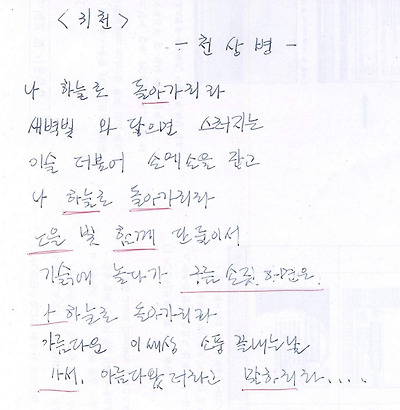 <귀천>
- 천상병 -
나 하늘로 돌아가리라
새벽빛 와 닿으면 스러지는
이슬 더불어 손에손을 잡고
나 하늘로 돌아가리라
노을 빛 함께 단 둘이서
기슭에 놀다가 구름 손짓 하면은.
나 하늘로 돌아가리라
아름다운 이세상 소풍 끝내는날
가서, 아름다왔더라고 말하리라....